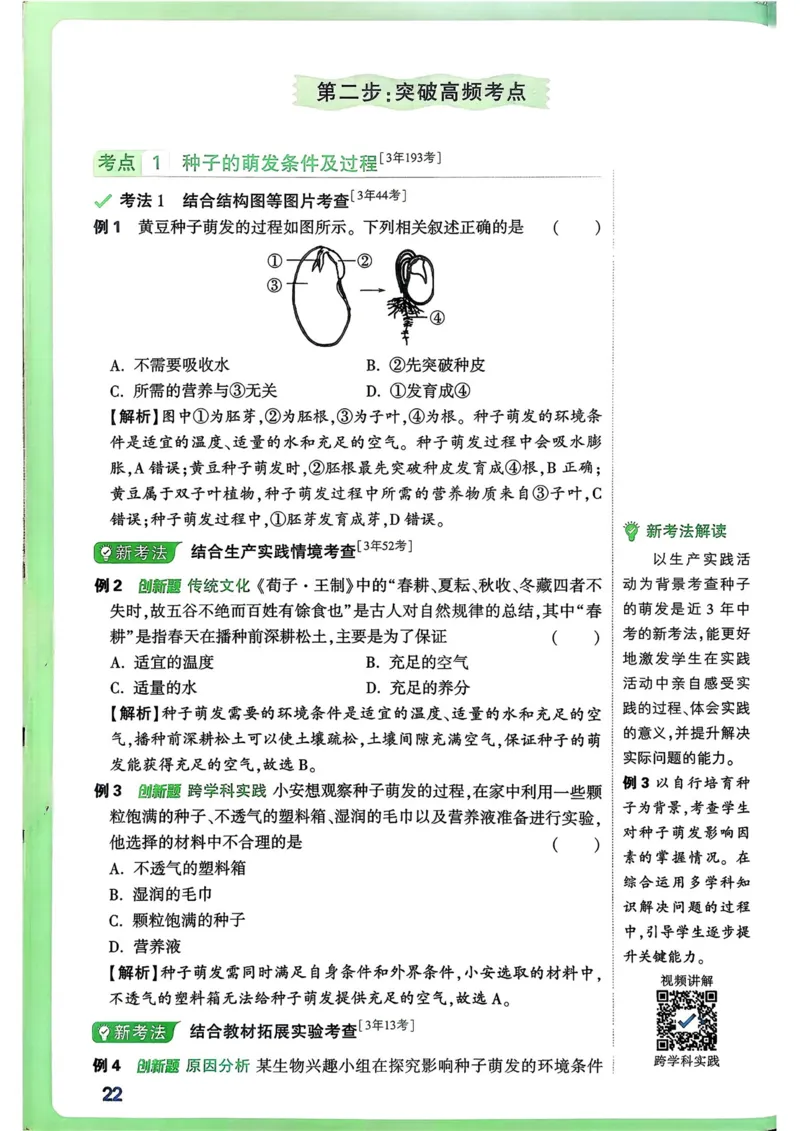 第二步:突破高频考点
考点 1 种子的萌发条件及过程[3年193考]
考法1 结合结构图等图片考查[3年44考]
例1 黄豆种子萌发的过程如图所示。下列相关叙述正确的是 ( )
① ②
③
④
A. 不需要吸收水 B. ②先突破种皮
C. 所需的营养与③无关 D. ①发育成④
【解析】图中①为胚芽,②为胚根,③为子叶,④为根。种子萌发的环境条
件是适宜的温度、适量的水和充足的空气。种子萌发过程中会吸水膨
胀,A错误;黄豆种子萌发时,②胚根最先突破种皮发育成④根,B 正确;
黄豆属于双子叶植物,种子萌发过程中所需的营养物质来自③子叶,C
错误;种子萌发过程中,①胚芽发育成芽,D错误。
新考法 结合生产实践情境考查[3年52考]
例2 创新题 传统文化《荀子·王制》中的“春耕、夏耘、秋收、冬藏四者不
失时,故五谷不绝而百姓有馀食也”是古人对自然规律的总结,其中“春
耕”是指春天在播种前深耕松土,主要是为了保证 ( )
A. 适宜的温度 B. 充足的空气
C. 适量的水 D. 充足的养分
【解析】种子萌发需要的环境条件是适宜的温度、适量的水和充足的空
气,播种前深耕松土可以使土壤疏松,土壤间隙充满空气,保证种子的萌
发能获得充足的空气,故选B。
例3 创新题 跨学科实践 小安想观察种子萌发的过程,在家中利用一些颗
粒饱满的种子、不透气的塑料箱、湿润的毛巾以及营养液准备进行实验,
他选择的材料中不合理的是 ( )
A. 不透气的塑料箱
B. 湿润的毛巾
C. 颗粒饱满的种子
D. 营养液
【解析】种子萌发需同时满足自身条件和外界条件,小安选取的材料中,
不透气的塑料箱无法给种子萌发提供充足的空气,故选A。
新考法 结合教材拓展实验考查[3年13考]
例4 创新题 原因分析 某生物兴趣小组在探究影响种子萌发的环境条件
22
新考法解读
以生产实践活
动为背景考查种子
的萌发是近3年中
考的新考法,能更好
地激发学生在实践
活动中亲自感受实
践的过程、体会实践
的意义,并提升解决
实际问题的能力。
例3以自行培育种
子为背景,考查学生
对种子萌发影响因
素的掌握情况。在
综合运用多学科知
识解决问题的过程
中,引导学生逐步提
升关键能力。
视频讲解
跨学科实践